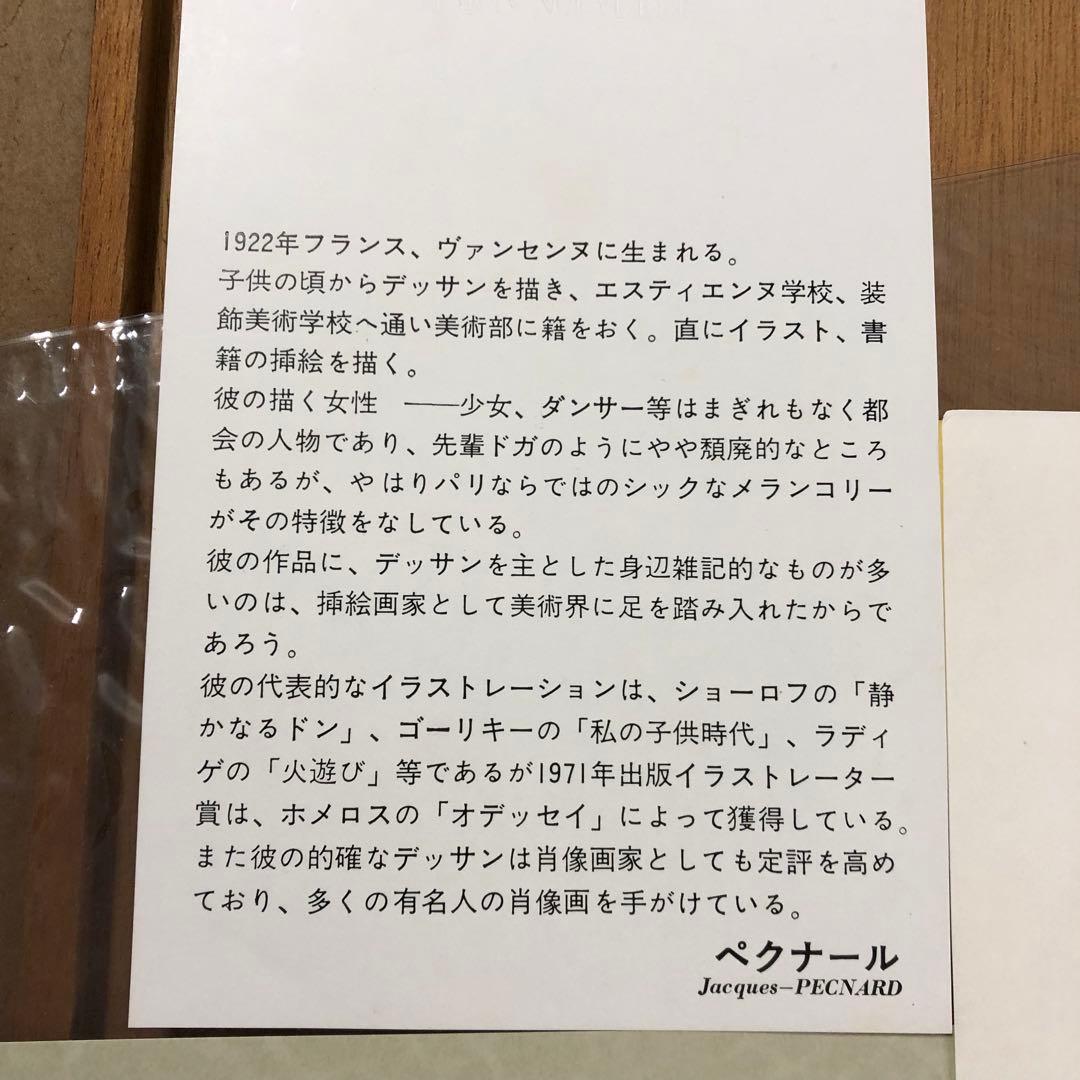 1922年フランス、ヴァンセンヌに生まれる。
子供の頃からデッサンを描き、エスティエンヌ学校、装
飾美術学校へ通い美術部に籍をおく。直にイラスト、書
籍の挿絵を描く。
彼の描く女性 ――少女、ダンサー等はまぎれもなく都
会の人物であり、先輩ドガのようにやや頽廃的なところ
もあるが、やはりパリならではのシックなメランコリー
がその特徴をなしている。
彼の作品に、デッサンを主とした身辺雑記的なものが多
いのは、挿絵画家として美術界に足を踏み入れたからで
あろう。
彼の代表的なイラストレーションは、ショーロフの「静
かなるドン」、ゴーリキーの「私の子供時代」、ラディ
ゲの「火遊び」等であるが1971年出版イラストレーター
賞は、ホメロスの「オデッセイ」によって獲得している。
また彼の的確なデッサンは肖像画家としても定評を高め
ており、多くの有名人の肖像画を手がけている。
ペクナール
Jacques–PECNARD